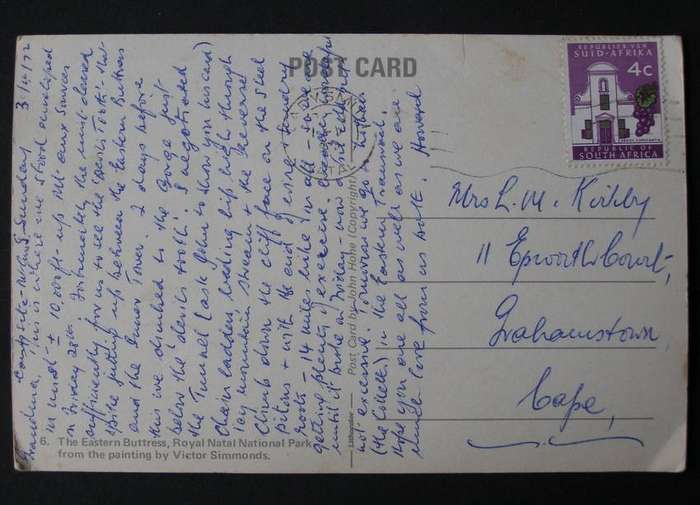 POST CARD
REPUBLIEK VAN
SUID-AFRIKA
4c
REPUBLIC OF
SOUTH AFRICA
Camp Site Sunday 3/4/72
Grandma, This is where we stood enveloped
in mist ± 10,000 ft up Mt aux Sources
on Friday again. Fortunately the mist cleared
sufficiently for us to see the "Devils Tooth" that
spike jutting up between the Eastern Buttress
and the Inner Tower. 2 days before
this we climbed up the Gorge just
below the "devils tooth". I negotiated
the Tunnel (ask John to show you his card)
Chain ladders, wading hip high through
icy mountain stream + the traversal
climb down the cliff face on the steel
pitons + with the aid of exposed
roots - 14 mile hike in all - so we are
getting plenty of exercise.
until it broke on Friday - now
not excessive. Tomorrow we go
(the Collects) in the Eastern Transvaal.
Hope you are all as well as we are
Much love from us both. Howard
Mrs L. M. Kirkby
11 Epworth Court,
Grahamstown,
Cape,
Post Card by John Hohe (Copyright)
6. The Eastern Buttress, Royal Natal National Park
from the painting by Victor Simmonds.